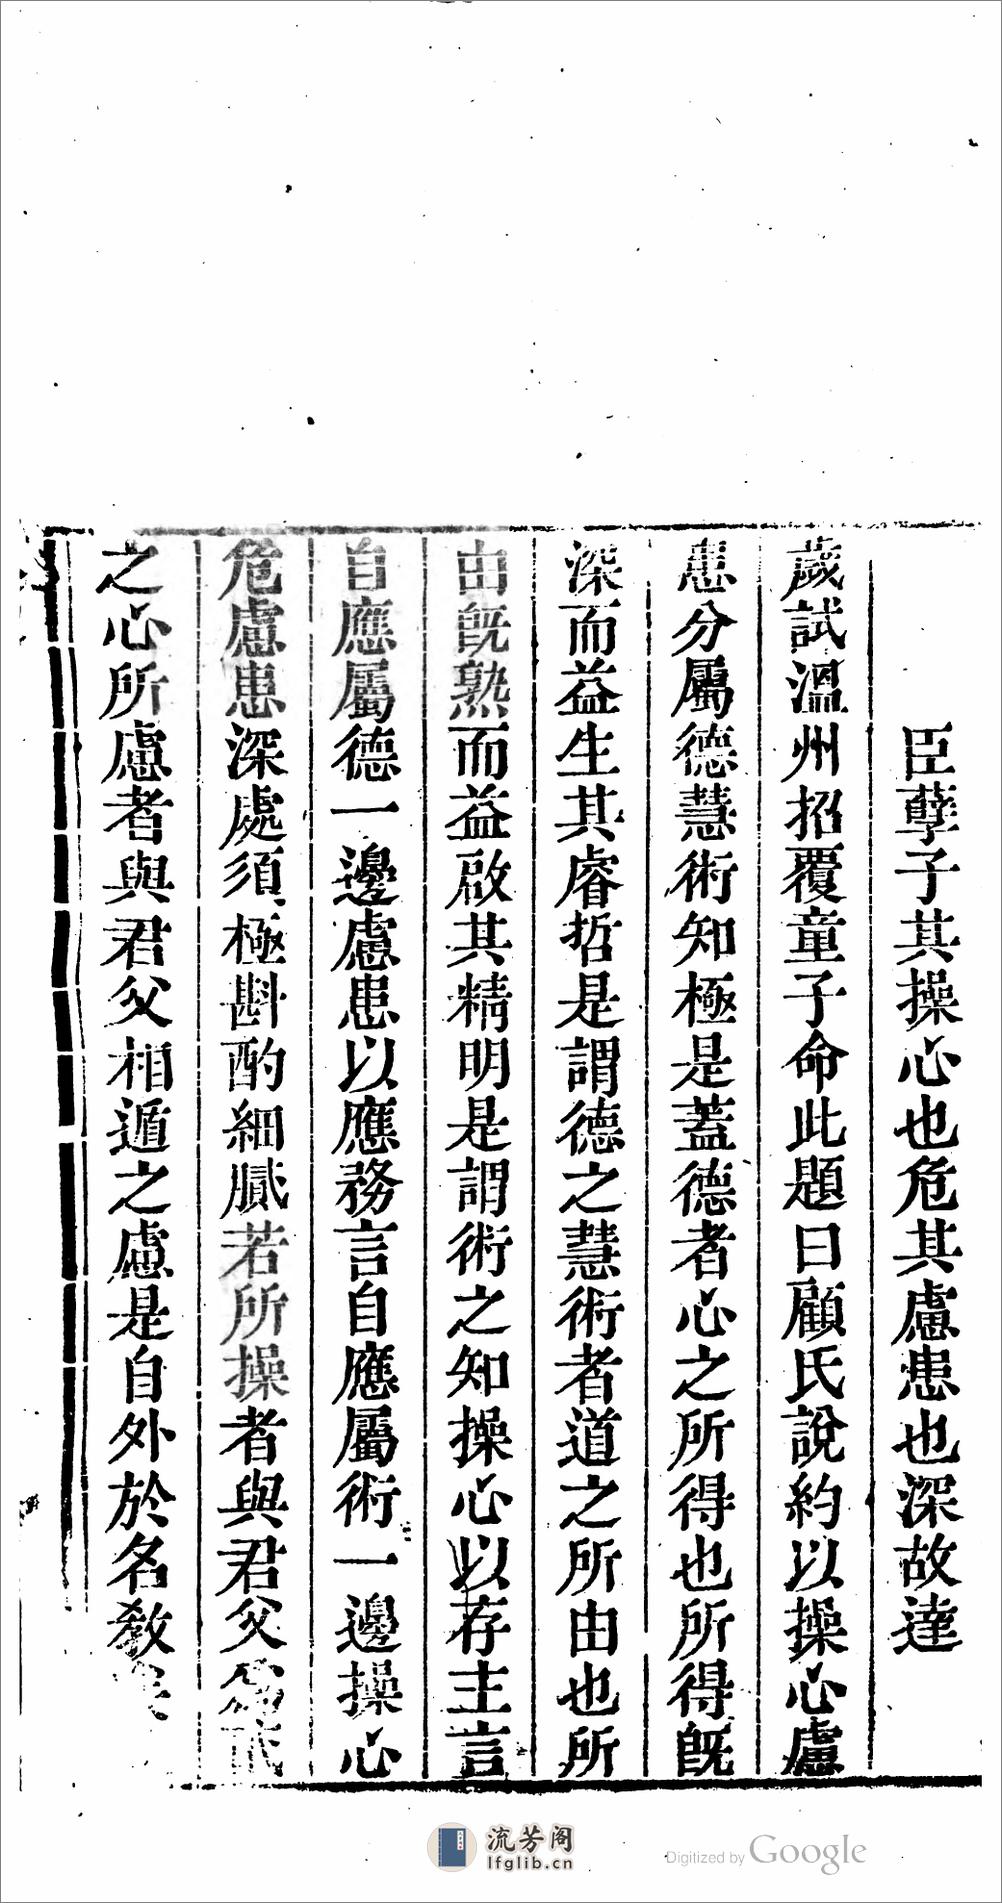 臣孽子其操心也危其慮患也深故達
歲試溫州招覆童子命此題曰顧氏說約以操心慮
患分屬德慧術知極是蓋德者心之所得也所得旣
深而益生其睿哲是謂德之慧術者道之所由也所
由旣熟而益啟其精明是謂術之知操心以存主言
自應屬德一邊慮患以應務言自應屬術一邊操心
危慮患深處須極斟酌細膩若所操者與君父為
之心所慮者與君父相遁之慮是自外於名教
流芳阁
lfglib.cn
Digitized by Google